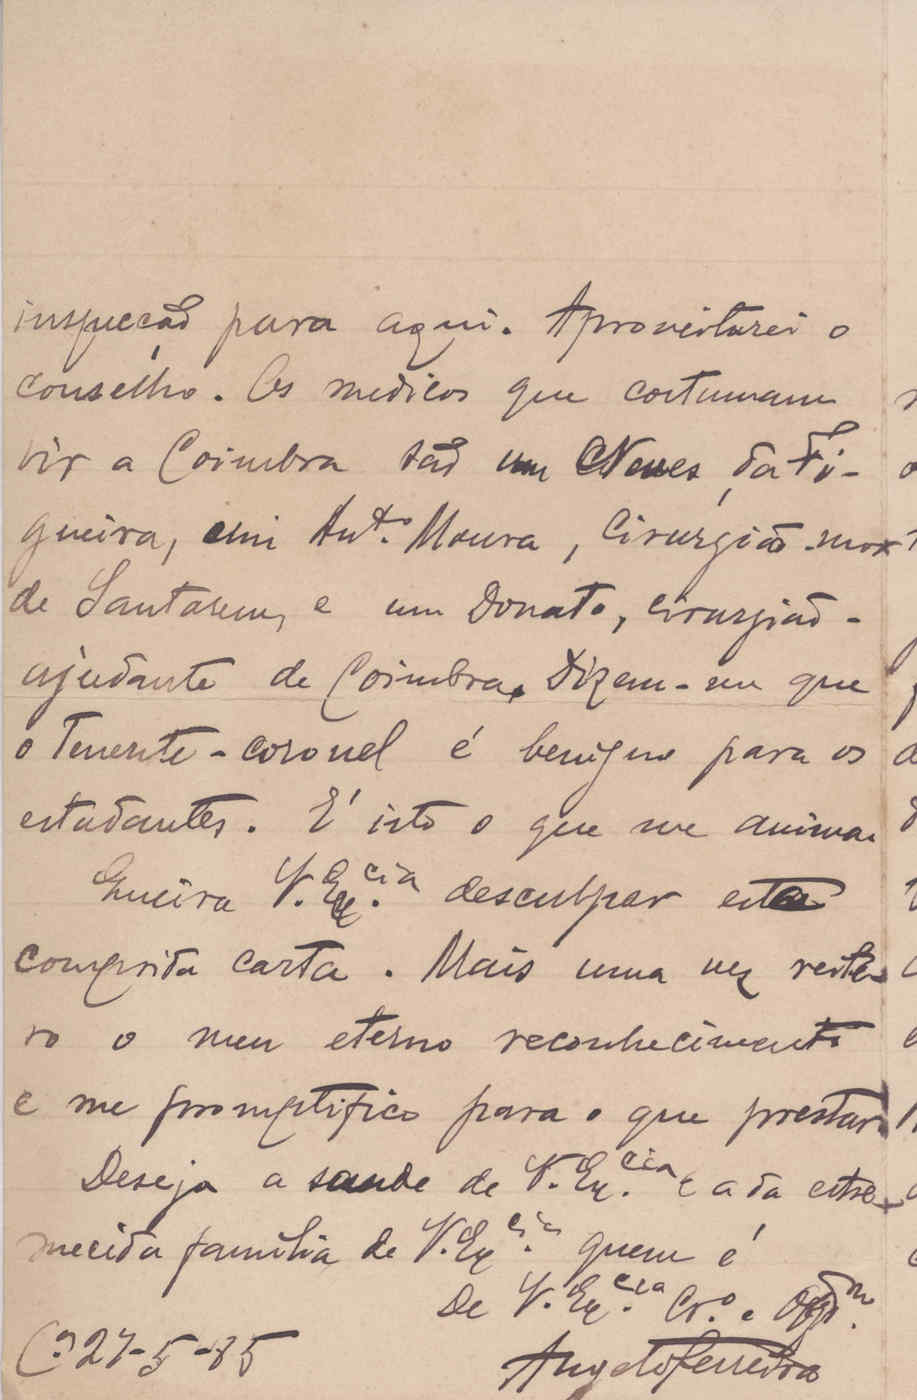 inspecção para aqui. Aproveitarei o
conselho. Os medicos que costumam
vir a Coimbra são um Neves, da Fi-
gueira, um Antº. Moura, Cirurgião-mor
de Santarem, e um Donato, cirurgião-
ajudante de Coimbra. Dizem-me que
o Tenente-coronel é benigno para os
estudantes. É isto o que me anima.
Queira V. Exᶜⁱᵃ. desculpar esta
comprida carta. Mais uma vez reite-
ro o meu eterno reconhecimento
e me promptifico para o que prestar.
Deseja a saude de V. Exᶜⁱᵃ. e a da estre-
mecida familia de V. Exᶜⁱᵃ. quem é
De V. Exᶜⁱᵃ. Cr.º e
Cª 27-5-85
Angelo Ferreira